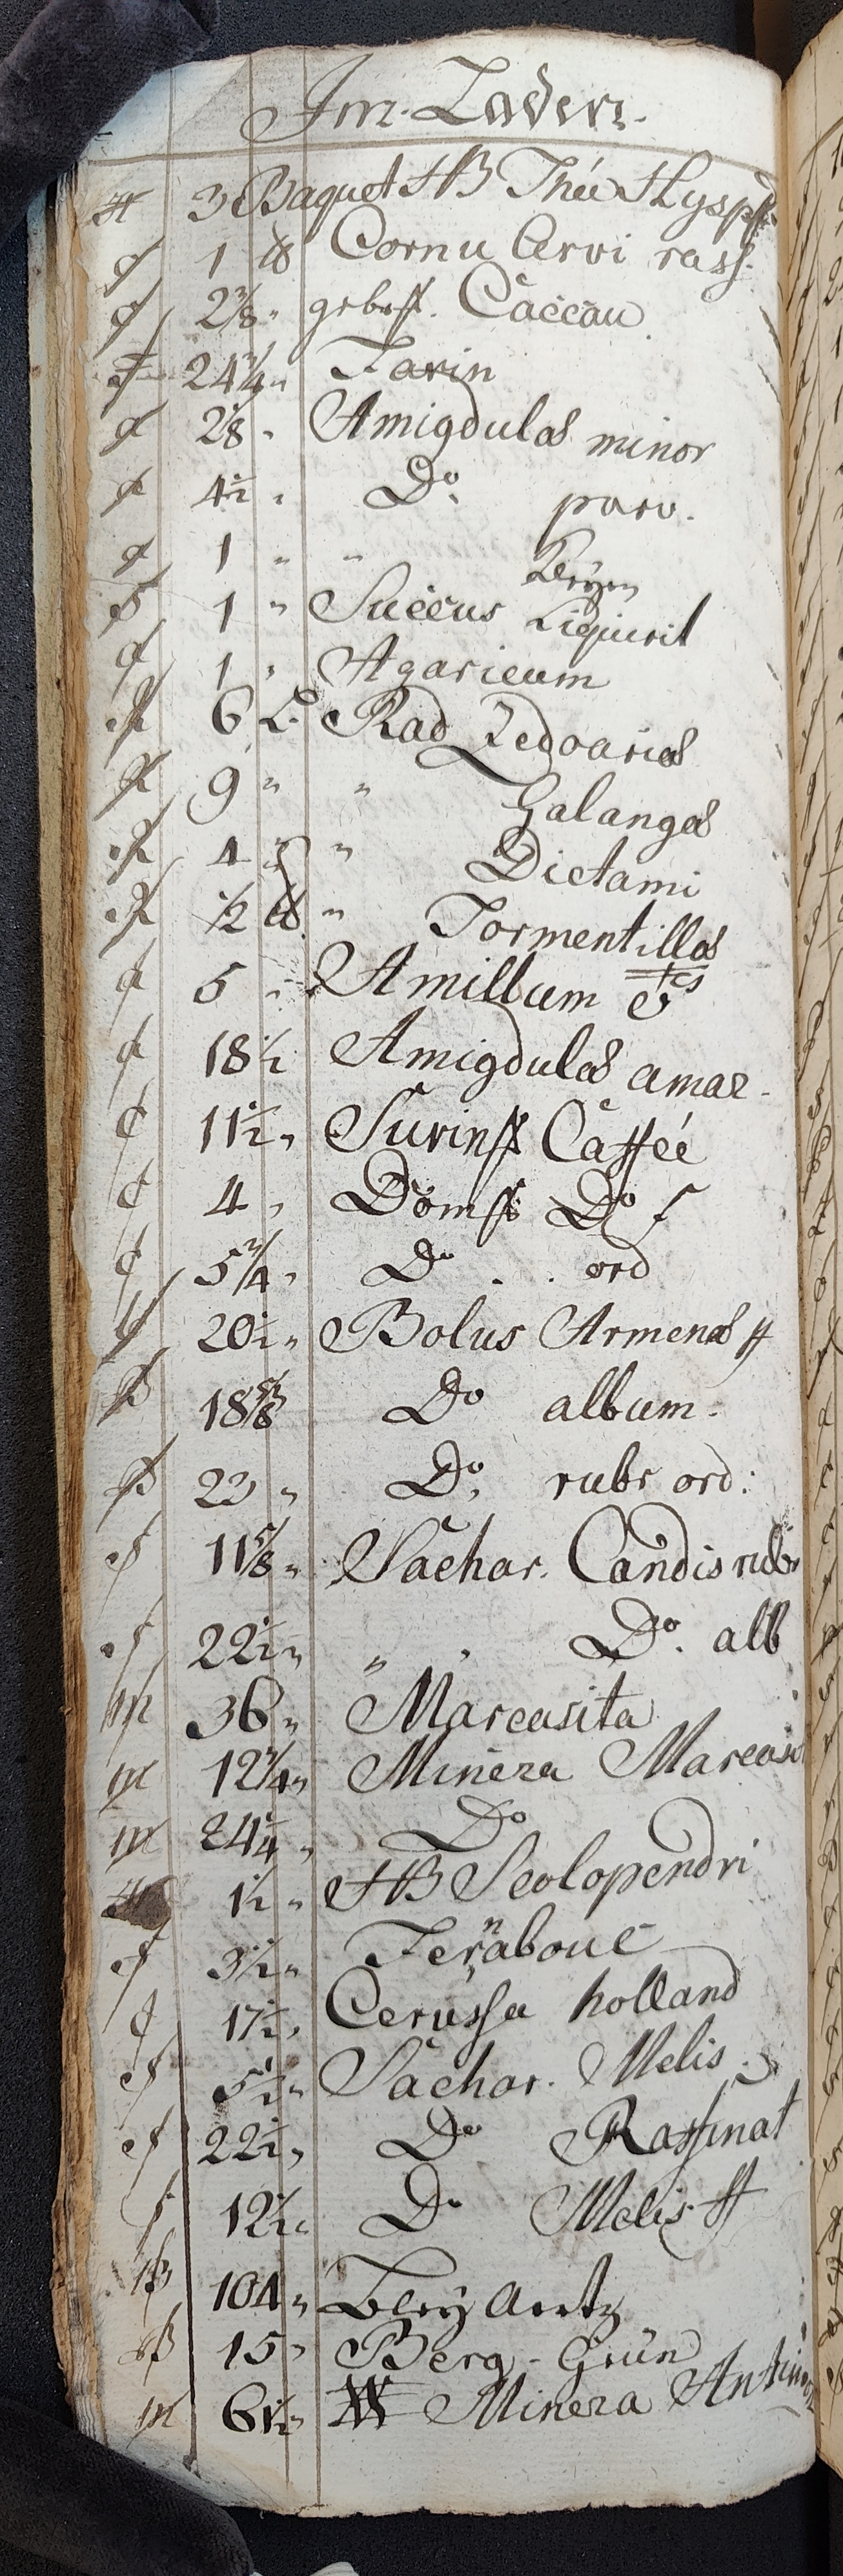 Im Laden.
H 3 Paquet HB Thée Hysp
C 1 ℔ Cornu Cervi rass.
C 2 3/8 " gebr. Caccau
F 24 3/4 " Farin
A 2 1/8 " Amigdulae minor
A 4 1/2 " Do parv.
A 1 " "
S 1 " Succus Liquirit
A 1 " Agaricum
R 6 L. Rad Zedoariae
R 9 " " Galangae
R 4 " " Dictami
R 1/2 ℔ " Tormentillae
A 5 " Amillum
A 18 1/2 Amigdulae amar.
C 11 1/2 " Surinsch Caffée
C 4 " Domsch Do f
C 5 3/4 " Do . . ord
B 20 1/2 " Bolus Armenae ff
B 18 5/8 Do album.
B 23 " Do rubr ord:
S 11 5/8 " Sachar. Candis rubr
S 22 1/2 " " " Do. alb
M 36 " Marcasita
M 12 3/4 " Minera Marcasi
M 24 1/4 " Do
1 1/2 " HB Scolopendri
S 3 1/2 "
C 17 1/2 " Cerussa holland
S 5 1/2 " Sachar. Melis
S 22 1/2 " Do Raffinat
S 12 1/2 " Do Melis ff
B 104 " Bley Aertz
B 15 " Berg-Grün
M 6 1/2 " Minera Antimon